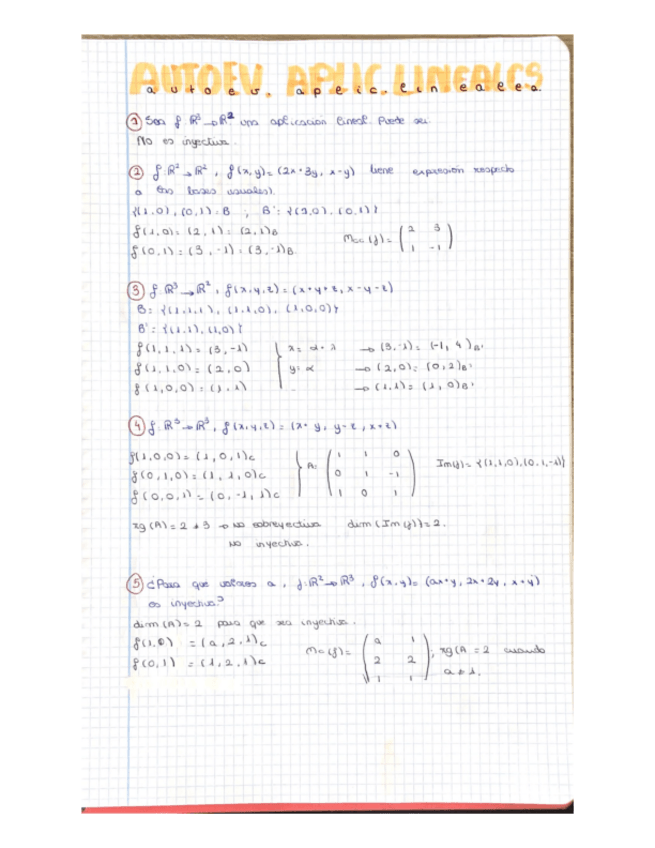 AUTOEV. APLIC. LINEALES
autoev. aplic. lineales
① Sea f R³→R² una aplicación lineal. Puede ser
No es inyectiva.
② f: R² → R², f(x,y)=(2x+3y, x-y) tiene expresión respecto
a bases usuales).
{(1,0), (0,1)} = B , B' = {(1,0), (0,1)}
f(1,0) = (2,1) = (2,1)B
f(0,1) = (3,-1) = (3,-1)B
Mcc (f) = ( 2 3
1 -1 )
③ f: R³ → R², f(x,y,z) = (x+y+z, x-y-z)
B = {(1,1,1), (1,1,0), (1,0,0)}
B' = {(1,1), (1,0)}
f(1,1,1) = (3,-1) { x = α + λ → (3,-1) = (-1, 4)B'
f(1,1,0) = (2,0) y = α → (2,0) = (0,2)B'
f(1,0,0) = (1,1) → (1,1) = (1,0)B'
④ f: R³ → R³, f(x,y,z) = (x+y, y-z, x+z)
f(1,0,0) = (1,0,1)c
f(0,1,0) = (1,1,0)c
f(0,0,1) = (0,-1,1)c
A = ( 1 1 0
0 1 -1
1 0 1 )
Im(f) = {(1,1,0), (0,1,-1)}
rg(A) = 2 ≠ 3 → No sobreyectiva dim (Im(f)) = 2.
No inyectiva.
⑤ ¿Para que valores a, f: R² → R³, f(x,y) = (ax+y, 2x+2y, x+y)
es inyectiva?
dim (A) = 2 para que sea inyectiva.
f(1,0) = (a,2,1)c
f(0,1) = (1,2,1)c
Mc (f) = ( a 1
2 2
1 1 ) , rg(A = 2 cuando
a ≠ 1.